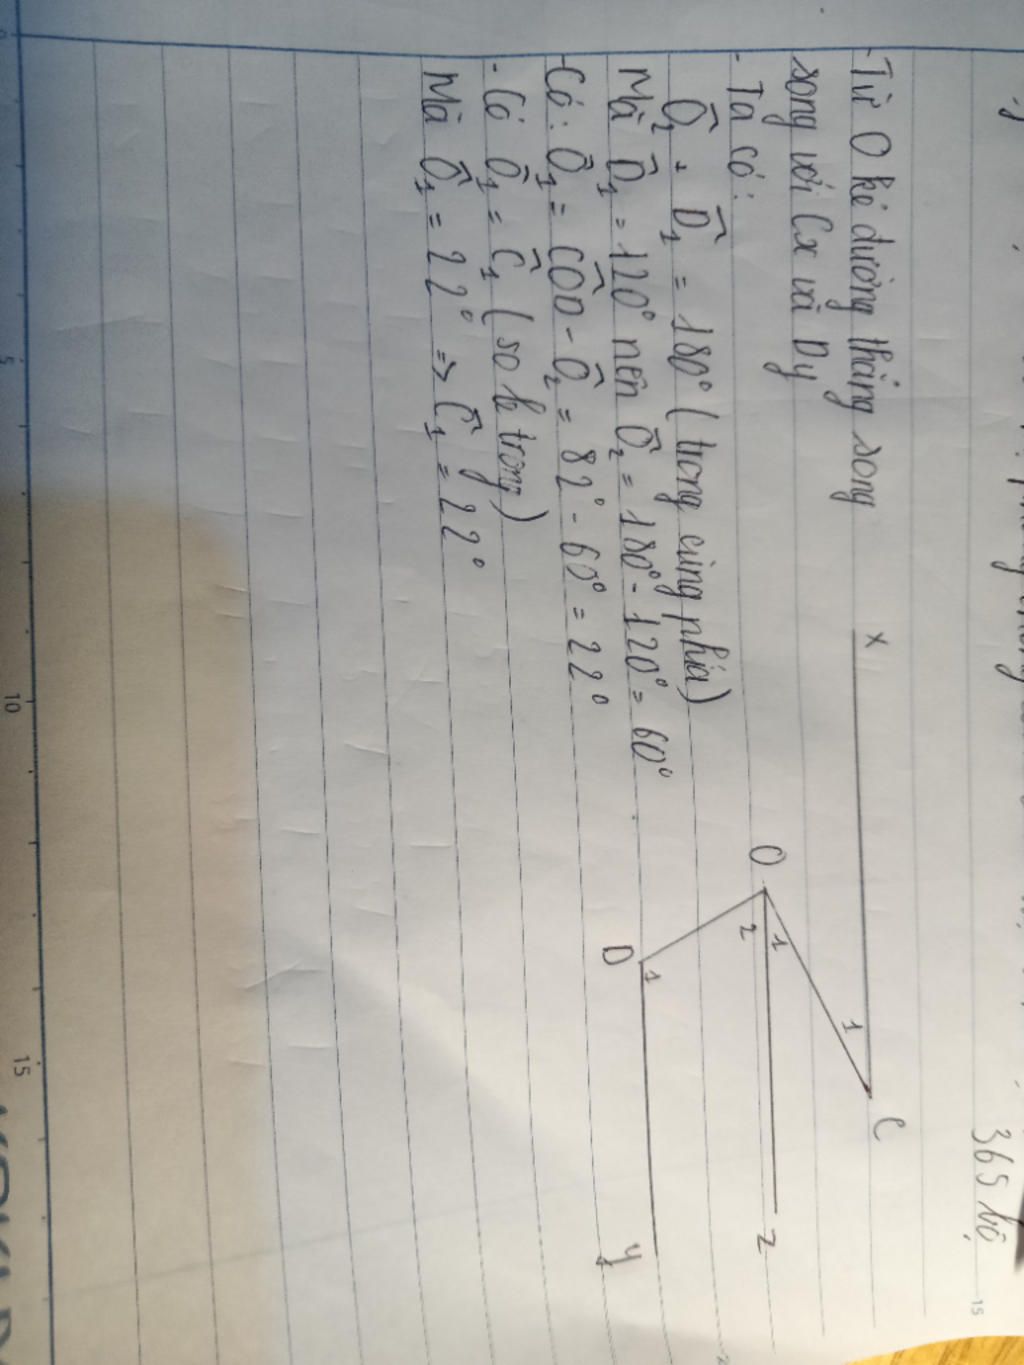 - Từ O kẻ đường thẳng song
song với Cx và Dy
- Ta có:
Ô₂ + D̂₁ = 180° (trong cùng phía)
Mà D̂₁ = 120° nên Ô₂ = 180° - 120° = 60°
- Có: Ô₁ = CÔD - Ô₂ = 82° - 60° = 22°
- Có Ô₁ = Ĉ₁ (so le trong)
Mà Ô₁ = 22° => Ĉ₁ = 22°
x
1
C
O
1
2
z
D
1
y
365 bộ
5
10
15
15